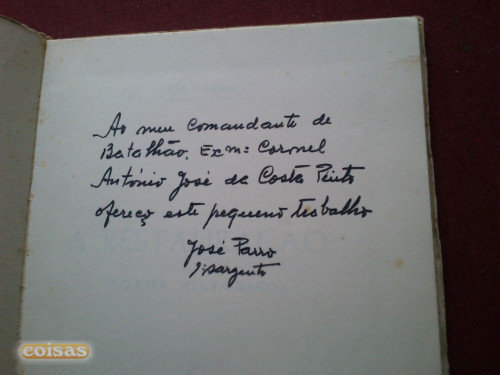 Ao meu Comandante de
Batalhão, Exmº Coronel
António José da Costa Pinto
ofereço este pequeno trabalho
José Parro
1º sargento
coisas